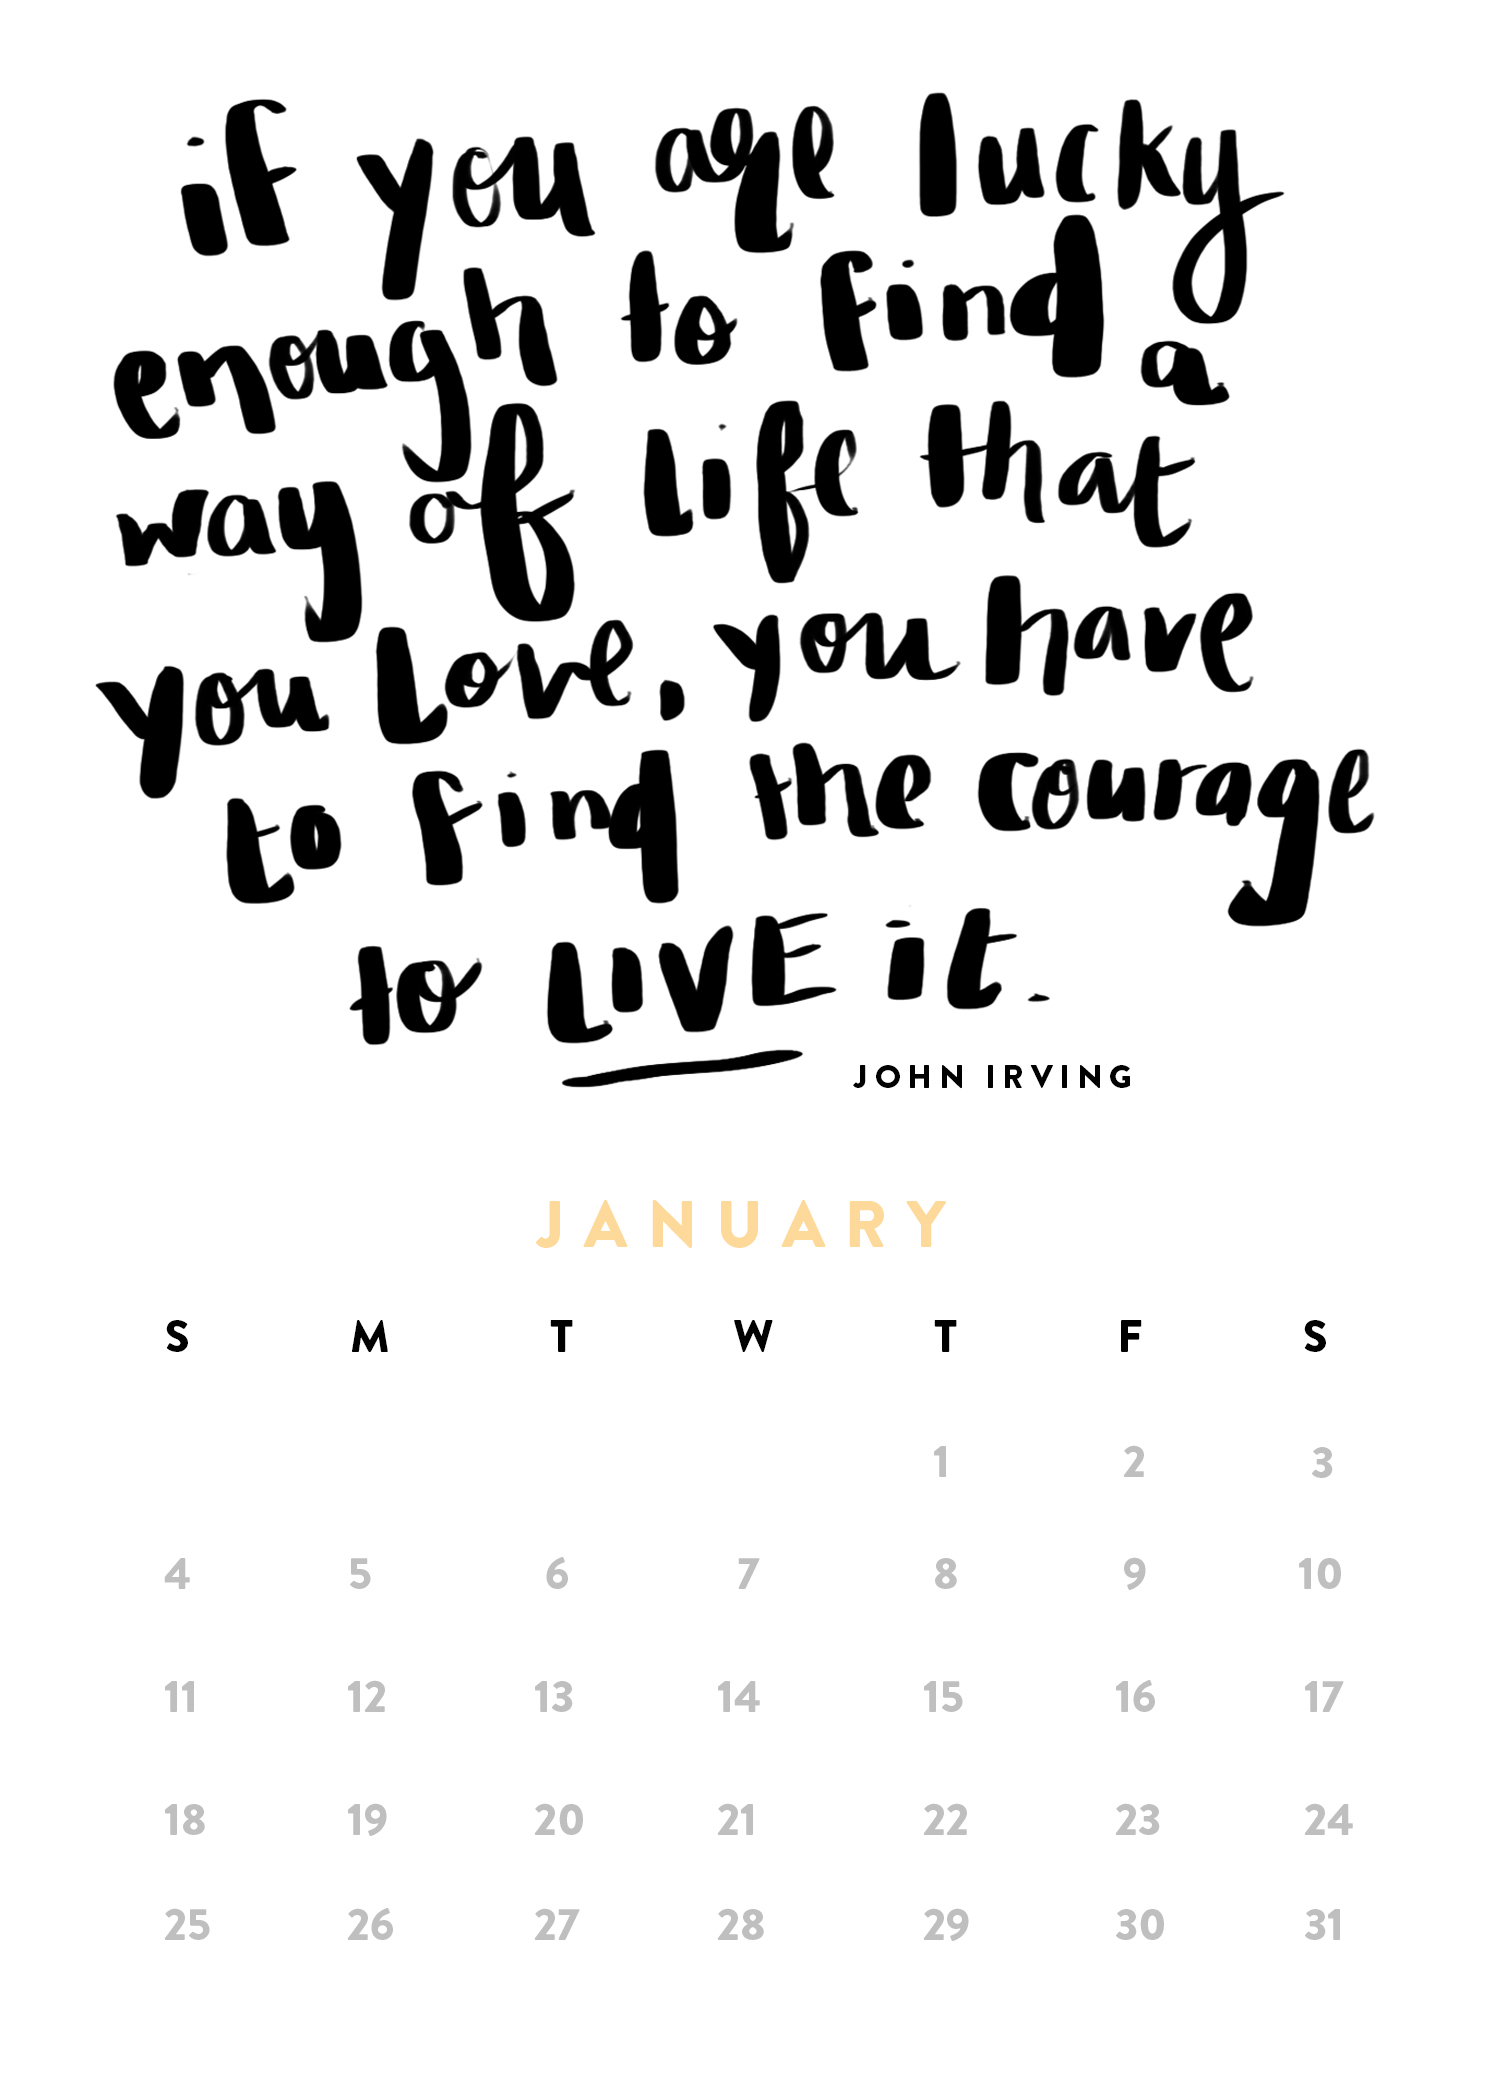 if you are lucky
enough to find a
way of life that
you love, you have
to find the courage
to LIVE it.
JOHN IRVING
JANUARY
S M T W T F S
1 2 3
4 5 6 7 8 9 10
11 12 13 14 15 16 17
18 19 20 21 22 23 24
25 26 27 28 29 30 31